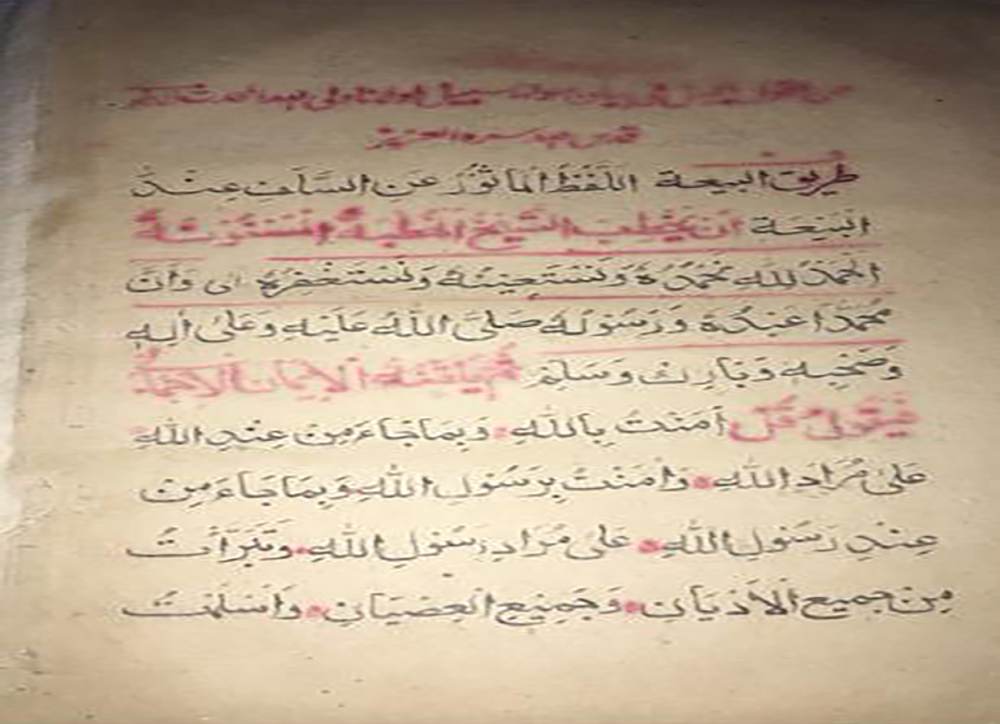 من القول الجميل
قدس سره العزيز
طريق البيعة اللَّفْظُ المَأثُوْرُ عن السَّلفِ عِنْدَ
الْبَيْعَة اَنْ يَخْطِبَ الشَّيْخُ الخُطْبَةَ الْمَسْنُوْنَةَ
اَلْحَمْدُ لِلّٰهِ نَحْمَدُهٗ وَنَسْتَعِيْنُهٗ وَنَسْتَغْفِرُهٗ الى وَاَنَّ
مُحَمَّدًا عَبْدُهٗ وَرَسُوْلُهٗ صَلَّى اللّٰهُ عَلَيْهِ وَعَلٰى اٰلِهٖ
وَصَحْبِهٖ وَبَارِك وَسَلِّمْ ثُمَّ يُلَقِّنُهُ الْاِيْمَانَ الْاِجْمَالِيَّ
فَيَقُوْلُ قُلْ اٰمَنْتُ بِاللّٰهِ وَبِمَاجَاءَ مِنْ عِنْدِ اللّٰهِ
عَلٰى مُرَادِ اللّٰهِ وَاٰمَنْتُ بِرَسُوْلِ اللّٰهِ وَبِمَاجَاءَ مِنْ
عِنْدِ رَسُوْلِ اللّٰهِ عَلٰى مُرَادِ رَسُوْلِ اللّٰهِ وَتَبَرَّأْتُ
مِنْ جَمِيْعِ الْاَدْيَانِ وَجَمِيْعِ الْعِصْيَانِ وَاَسْلَمْتُ